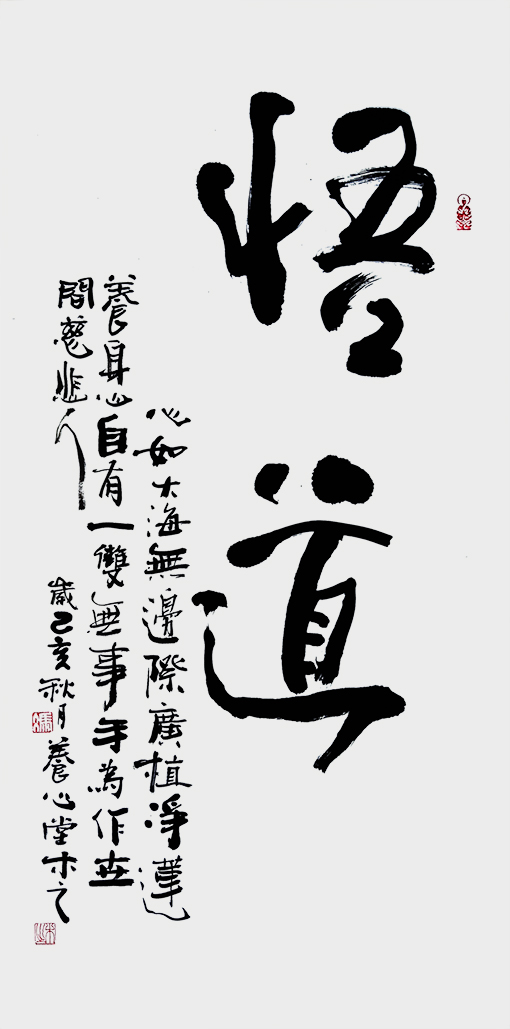 悟道
心如大海無邊際廣植淨蓮
養身心自有一雙無事手為作世
間慈悲人
歲己亥秋月養心堂木之